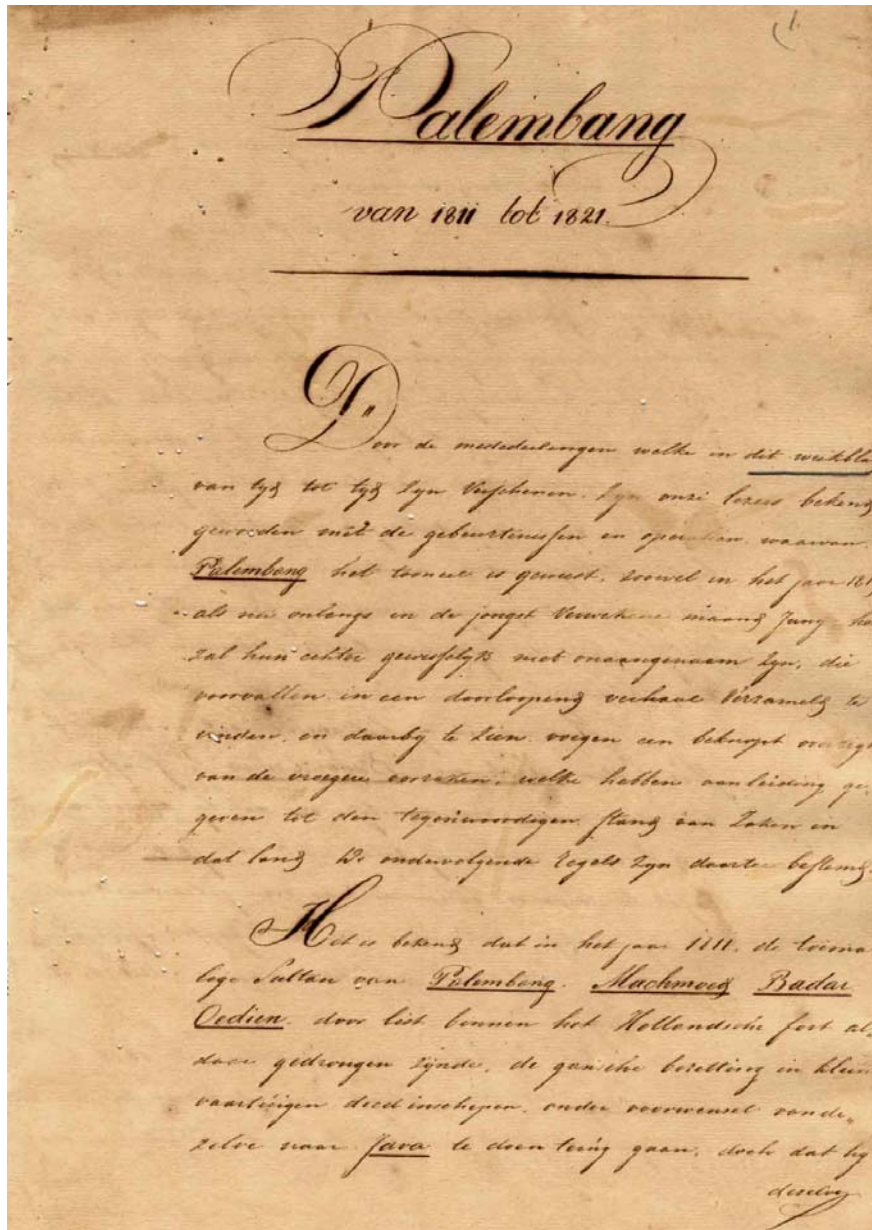 1.
Palembang
van 1811 tot 1821.
Door de mededeelingen welke in dit weekbla
van tyd tot tyd zyn verschenen. zyn onze lezers bekend
geworden met de gebeurtenissen en operatien, waarvan
Palembang het tooneel is geweest, zoowel in het jaar 181
als nu onlangs in de jongst verwekene maand Juny. he
zal hun echter gewisselyk niet onaangenaam zyn, die
voorvallen in een doorloopend verhaal verzameld te
vinden, en daarby te zien voegen een beknopt overzigt
van de vroegere oorzaken, welke hebben aanleiding ge„
geven tot den tegenwoordigen stand van zaken in
dat land De ondervolgende regels zyn daartoe bestemd.
Het is bekend dat in het jaar 1811. de toenma
lige Sultan van Palembang. Machmoed Badar
Oedien. door list binnen het Hollandsche fort al„
daar gedrongen zijnde, de gansche bezetting in klein
vaartuigen deed inschepen. onder voorwensel van de„
zelve naar Java te doen terug gaan, doch dat hy
dezelve